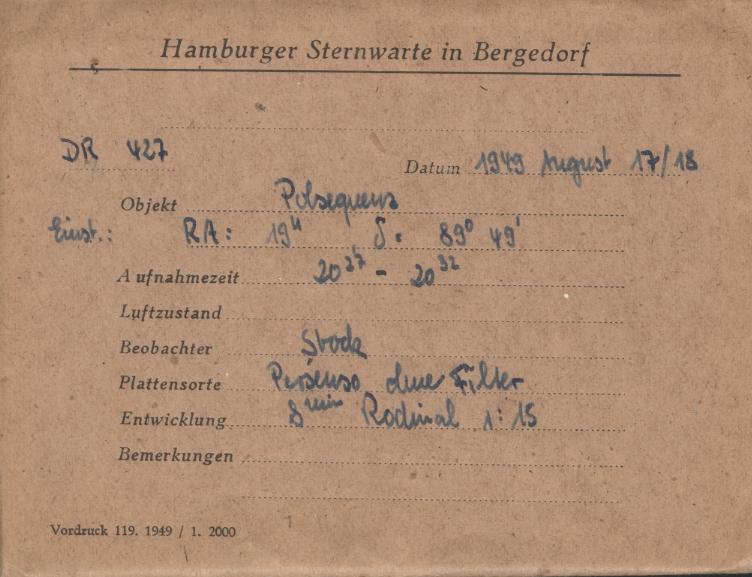 Hamburger Sternwarte in Bergedorf
DR 427
Datum 1949 August 17/18
Objekt Polsequenz
Einst.: RA: 19ʰ δ: 89° 49'
Aufnahmezeit 20²⁷ - 20³²
Luftzustand
Beobachter Stock
Plattensorte Persenso ohne Filter
Entwicklung 8ᵐⁱⁿ Rodinal 1:15
Bemerkungen
Vordruck 119. 1949 / 1. 2000